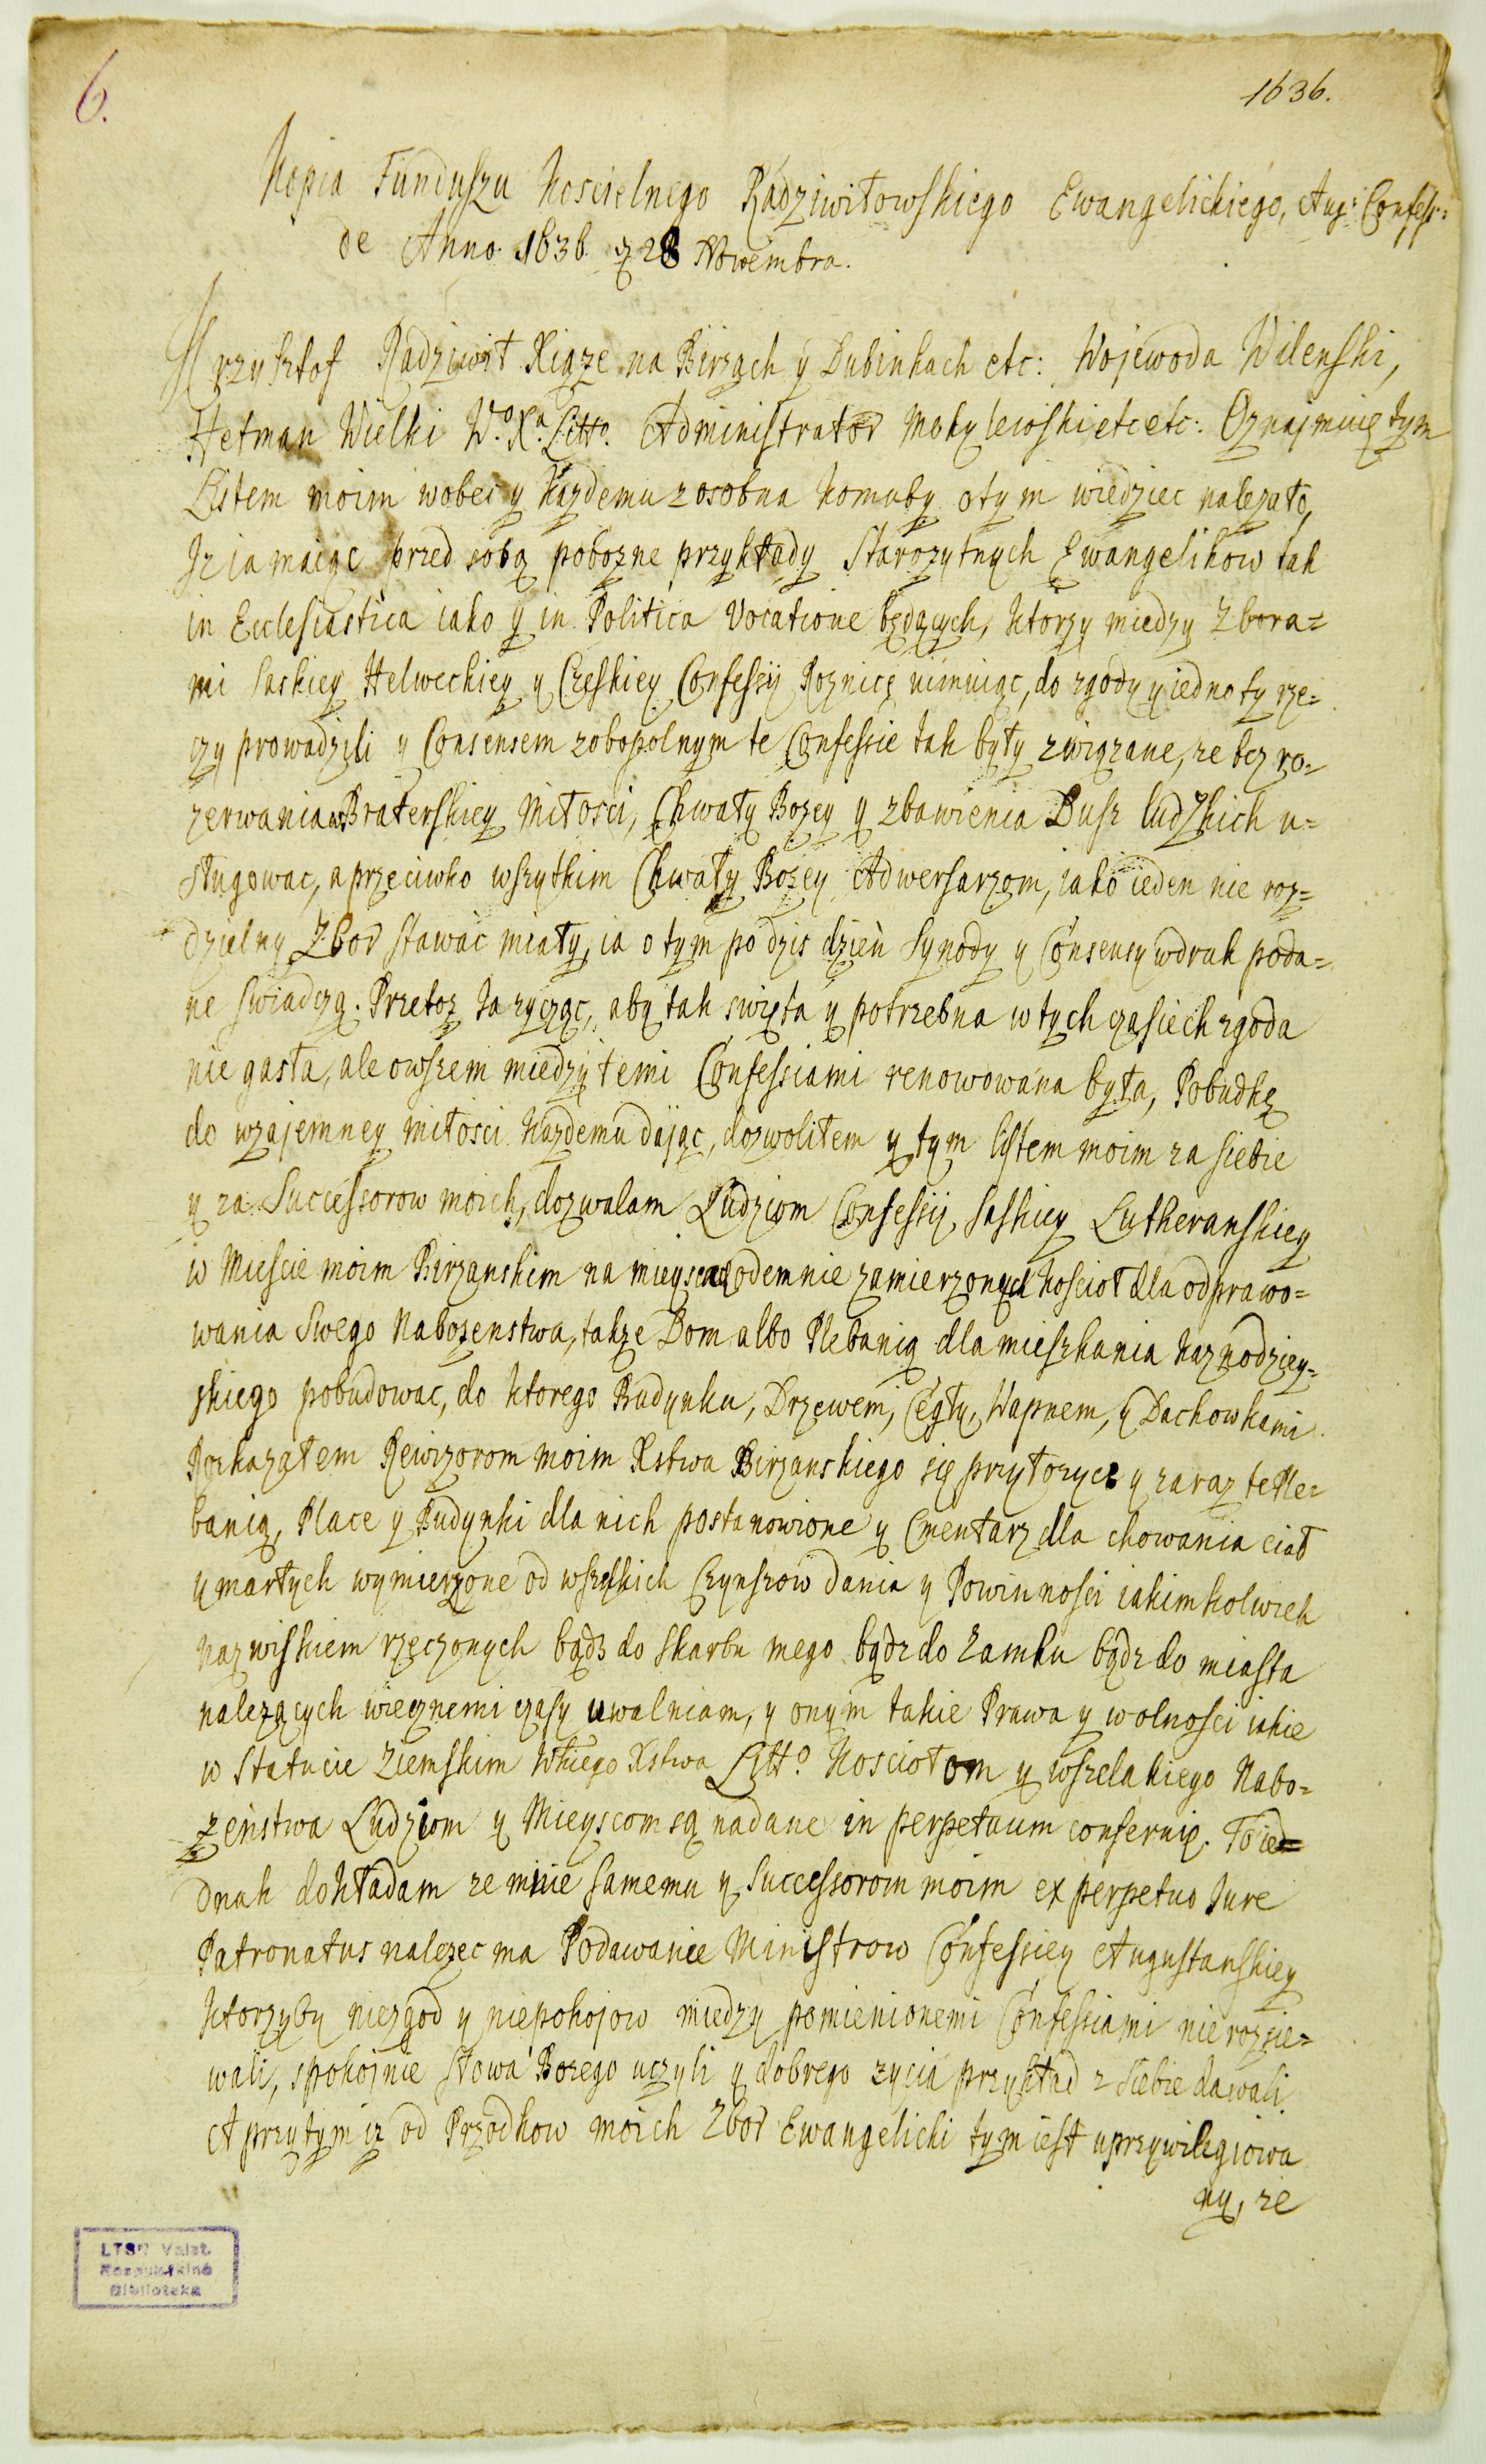 6.
1636.
Kopia Funduszu Koscielnego Radziwiłowskiego Ewangelickiego, Aug: Confess:
de Anno 1636. d 28 Nowembra.
Krzysztof Radziwił Xiąze na Birzach y Dubinkach etc: Wojewoda Wilenski,
Hetman Wielki W.o X.a Litto. Administrator Mohylewski etc etc: Oznajmuię tym
Listem moim wobec y kazdemu zosobna komuby otym wiedziec nalezało,
Iz ia maiąc przed sobą pobozne przykłady Starozytnych Ewangelikow tak
in Ecclesiastica iako y in Politica Vocatione będących, ktorzy miedzy Zbora=
mi Saskiey Helweckiey y Czeskiey Confessij Roznicę uimuiąc, do zgody y iednoty rze=
czy prowadzili y Consensem zobopolnym te Confessie tak były związane, ze bez ro=
zerwania w Braterskiey Miłosci, Chwały Bozey y zbawienia Dusz ludzkich u=
sługowac, a przeciwko wszytkim Chwały Bozey Adwersarzom, iako ieden nie roz=
dzielny Zbor stawac miały, ia o tym po dzis dzień Synody y Consensy w druk poda=
ne swiadczą. Przetoz Ia zycząc, aby tak swięta y potrzebna w tych czasiech zgoda
nie gasła, ale owszem miedzy temi Confessiami renowowana była, Pobudkę
do wzajemney miłosci kazdemu dając, dozwoliłem y tym listem moim za siebie
y za Successorow moich, dozwalam Ludziom Confessij Saskiey Lutheranskiey
w Miescie moim Birzanskim na mieyscach odemnie zamierzonych Koscioł dla odprawo=
wania Swego Nabozenstwa, takze Dom albo Plebanią dla mieszkania kaznodziey=
skiego pobudowac, do ktorego Budynku, Drzewem, Cegłą, Wapnem, y Dachowkami
Rozkazałem Rewizorom moim Xstwa Birzanskiego się przyłozyc y zaraz te Ple=
banią, Place y Budynki dla nich postanowione y Cmentarz dla chowania ciał
umarłych wymierzone od wszytkich Czynszow Dania y Powinnosci iakimkolwiek
nazwiskiem rzeczonych bądz do Skarbu mego bądz do Zamku bądz do miasta
nalezących wiecznemi czasy uwalniam, y onym takie Prawa y wolnosci iakie
w Statucie Ziemskim Wkiego Xstwa Litto Kosciołom y wszelakiego Nabo=
zeństwa Ludziom y Mieyscom są nadane in perpetuum conferuię. To ied=
dnak dokładam ze mnie samemu y Successorom moim ex perpetuo Iure
Patronatus nalezec ma Podawanie Ministrow Confessiey Augustanskiey
ktorzyby niezgod y niepokojow miedzy pomienionemi Confessiami nie rozsie=
wali, spokojnie słowa Bozego uczyli y dobrego zycia przykład z siebie dawali.
A przytym iz od Przodkow moich Zbor Ewangelicki tym iest uprzywilegiowa
ny, ze
LTSR Valst.
Respublikinė
Biblioteka